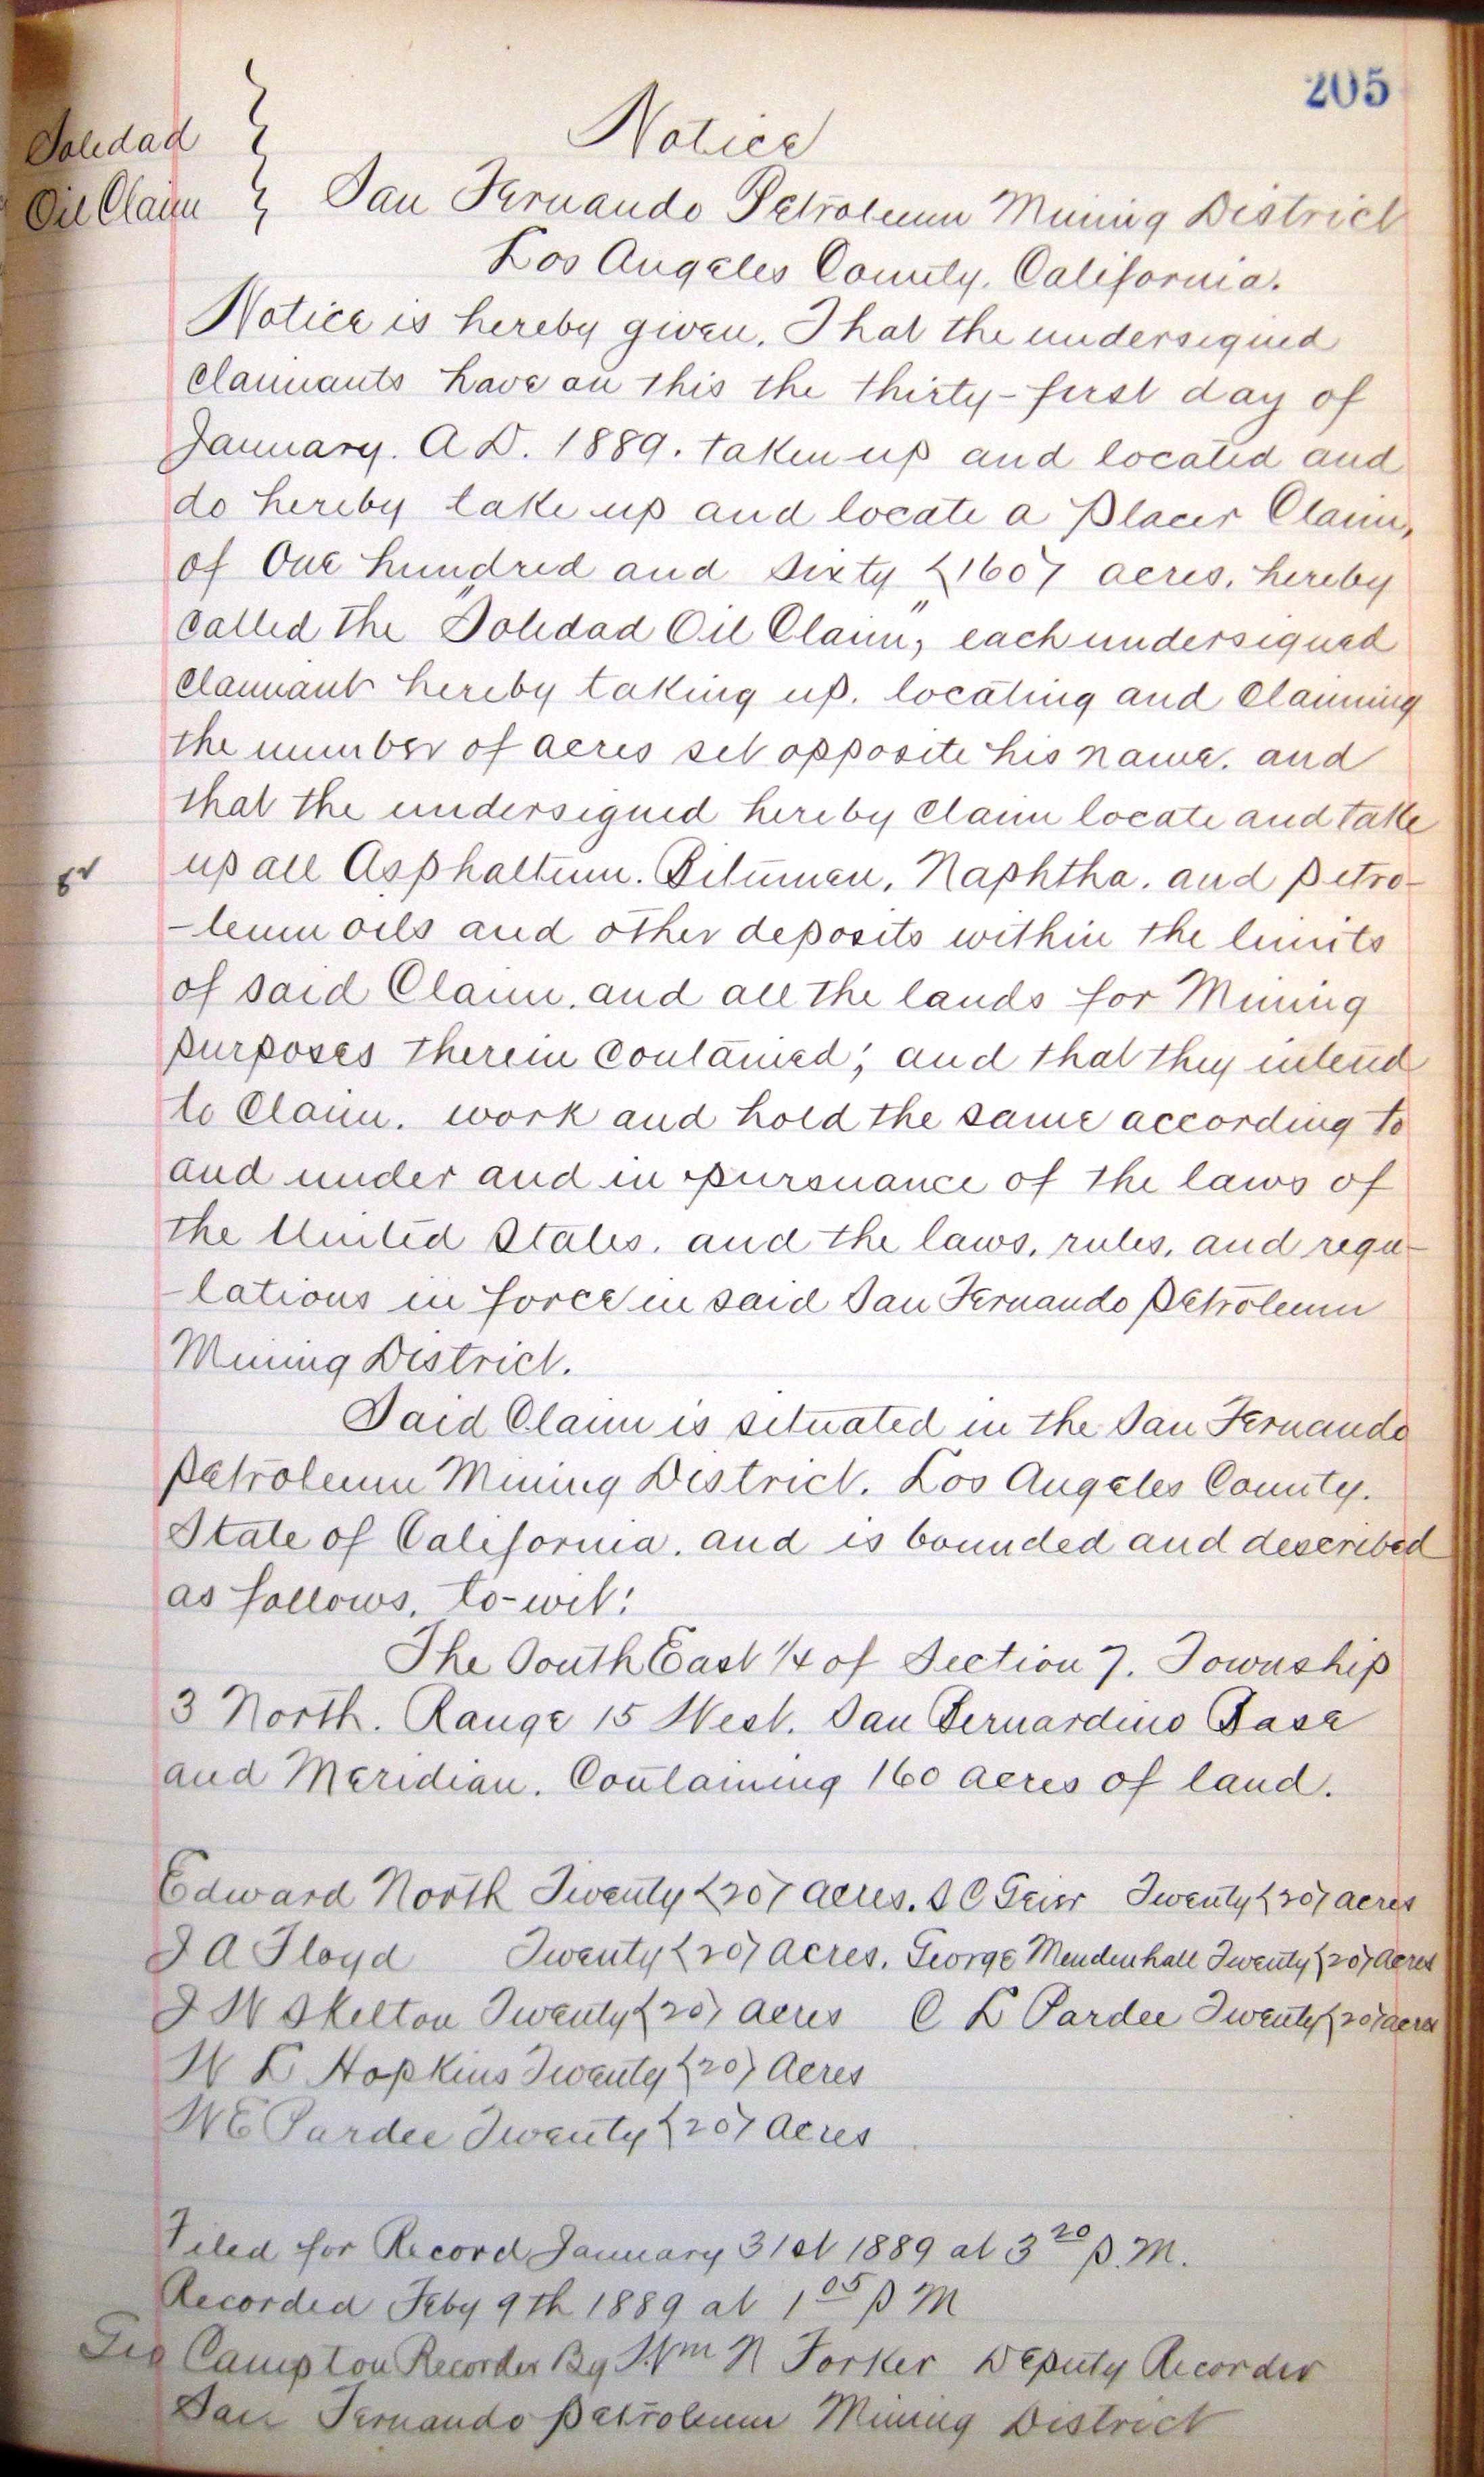 205
Soledad
Oil Claim
Notice
San Fernando Petroleum Mining District
Los Angeles County, California.
Notice is hereby given, That the undersigned
claimants have on this the thirty-first day of
January. A.D. 1889. taken up and located and
do hereby take up and locate a Placer Claim,
of One hundred and sixty (160) acres, hereby
called the "Soledad Oil Claim", each undersigned
claimant hereby taking up, locating and claiming
the number of acres set opposite his name, and
that the undersigned hereby claim locate and take
up all Asphaltum. Bitumen, Naphtha, and petro-
-leum oils and other deposits within the limits
of said Claim, and all the lands for Mining
purposes therein contained; and that they intend
to Claim, work and hold the same according to
and under and in pursuance of the laws of
the United States, and the laws, rules, and regu-
-lations in force in said San Fernando Petroleum
Mining District.
Said Claim is situated in the San Fernando
Petroleum Mining District. Los Angeles County.
State of California. and is bounded and described
as follows, to-wit:
The South East 1/4 of Section 7. Township
3 North. Range 15 West. San Bernardino Base
and Meridian. Containing 160 acres of land.
Edward North Twenty (20) acres. S C Twenty (20) acres
J A Floyd Twenty (20) acres. George Mendenhall Twenty (20) acres
J W Skelton Twenty (20) acres C L Pardee Twenty (20) acres
W L Hopkins Twenty (20) Acres
W E Pardee Twenty (20) acres
Filed for Record January 31st 1889 at 3 20 P.M.
Recorded Feby 9th 1889 at 1 05 P M
Geo Campton Recorder By Wm N Forker Deputy Recorder
San Fernando Petroleum Mining District